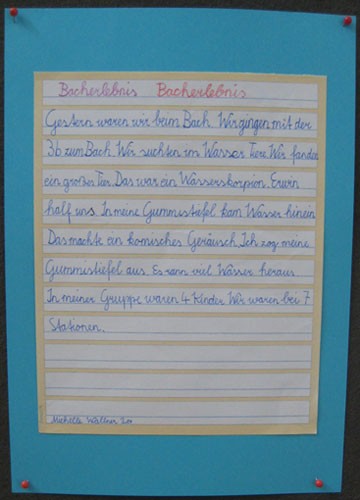 Bacherlebnis Bacherlebnis
Gestern waren wir beim Bach. Wir gingen mit der
3b zum Bach. Wir suchten im Wasser Tiere. Wir fanden
ein großes Tier. Das war ein Wasserskorpion. Erwin
half uns. In meine Gummistiefel kam Wasser hinein.
Das machte ein komisches Geräusch. Ich zog meine
Gummistiefel aus. Es rann viel Wasser heraus.
In meiner Gruppe waren 4 Kinder. Wir waren bei 7
Stationen.
Michelle Wallner